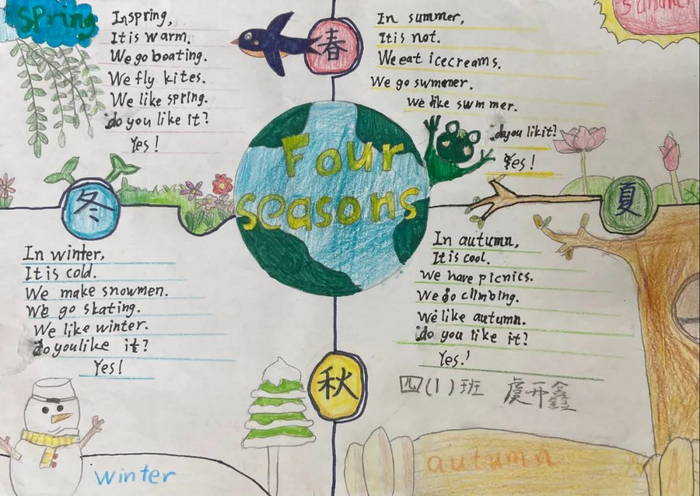 Spring
In spring,
It is warm.
We go boating.
We fly kites.
We like spring.
do you like it?
Yes!
春
In summer,
It is not.
We eat icecreams.
We go swmmer.
We like swmmer.
do you lik it?
Yes!
summer
Four
seasons
冬
夏
In winter,
It is cold.
We make snowmen.
We go skating.
We like winter.
do you like it?
Yes!
winter
秋
In autumn,
It is cool.
We have picnics.
We do climbing.
We like autumn.
do you like it?
Yes!
四(1)班 虞开鑫
autumn